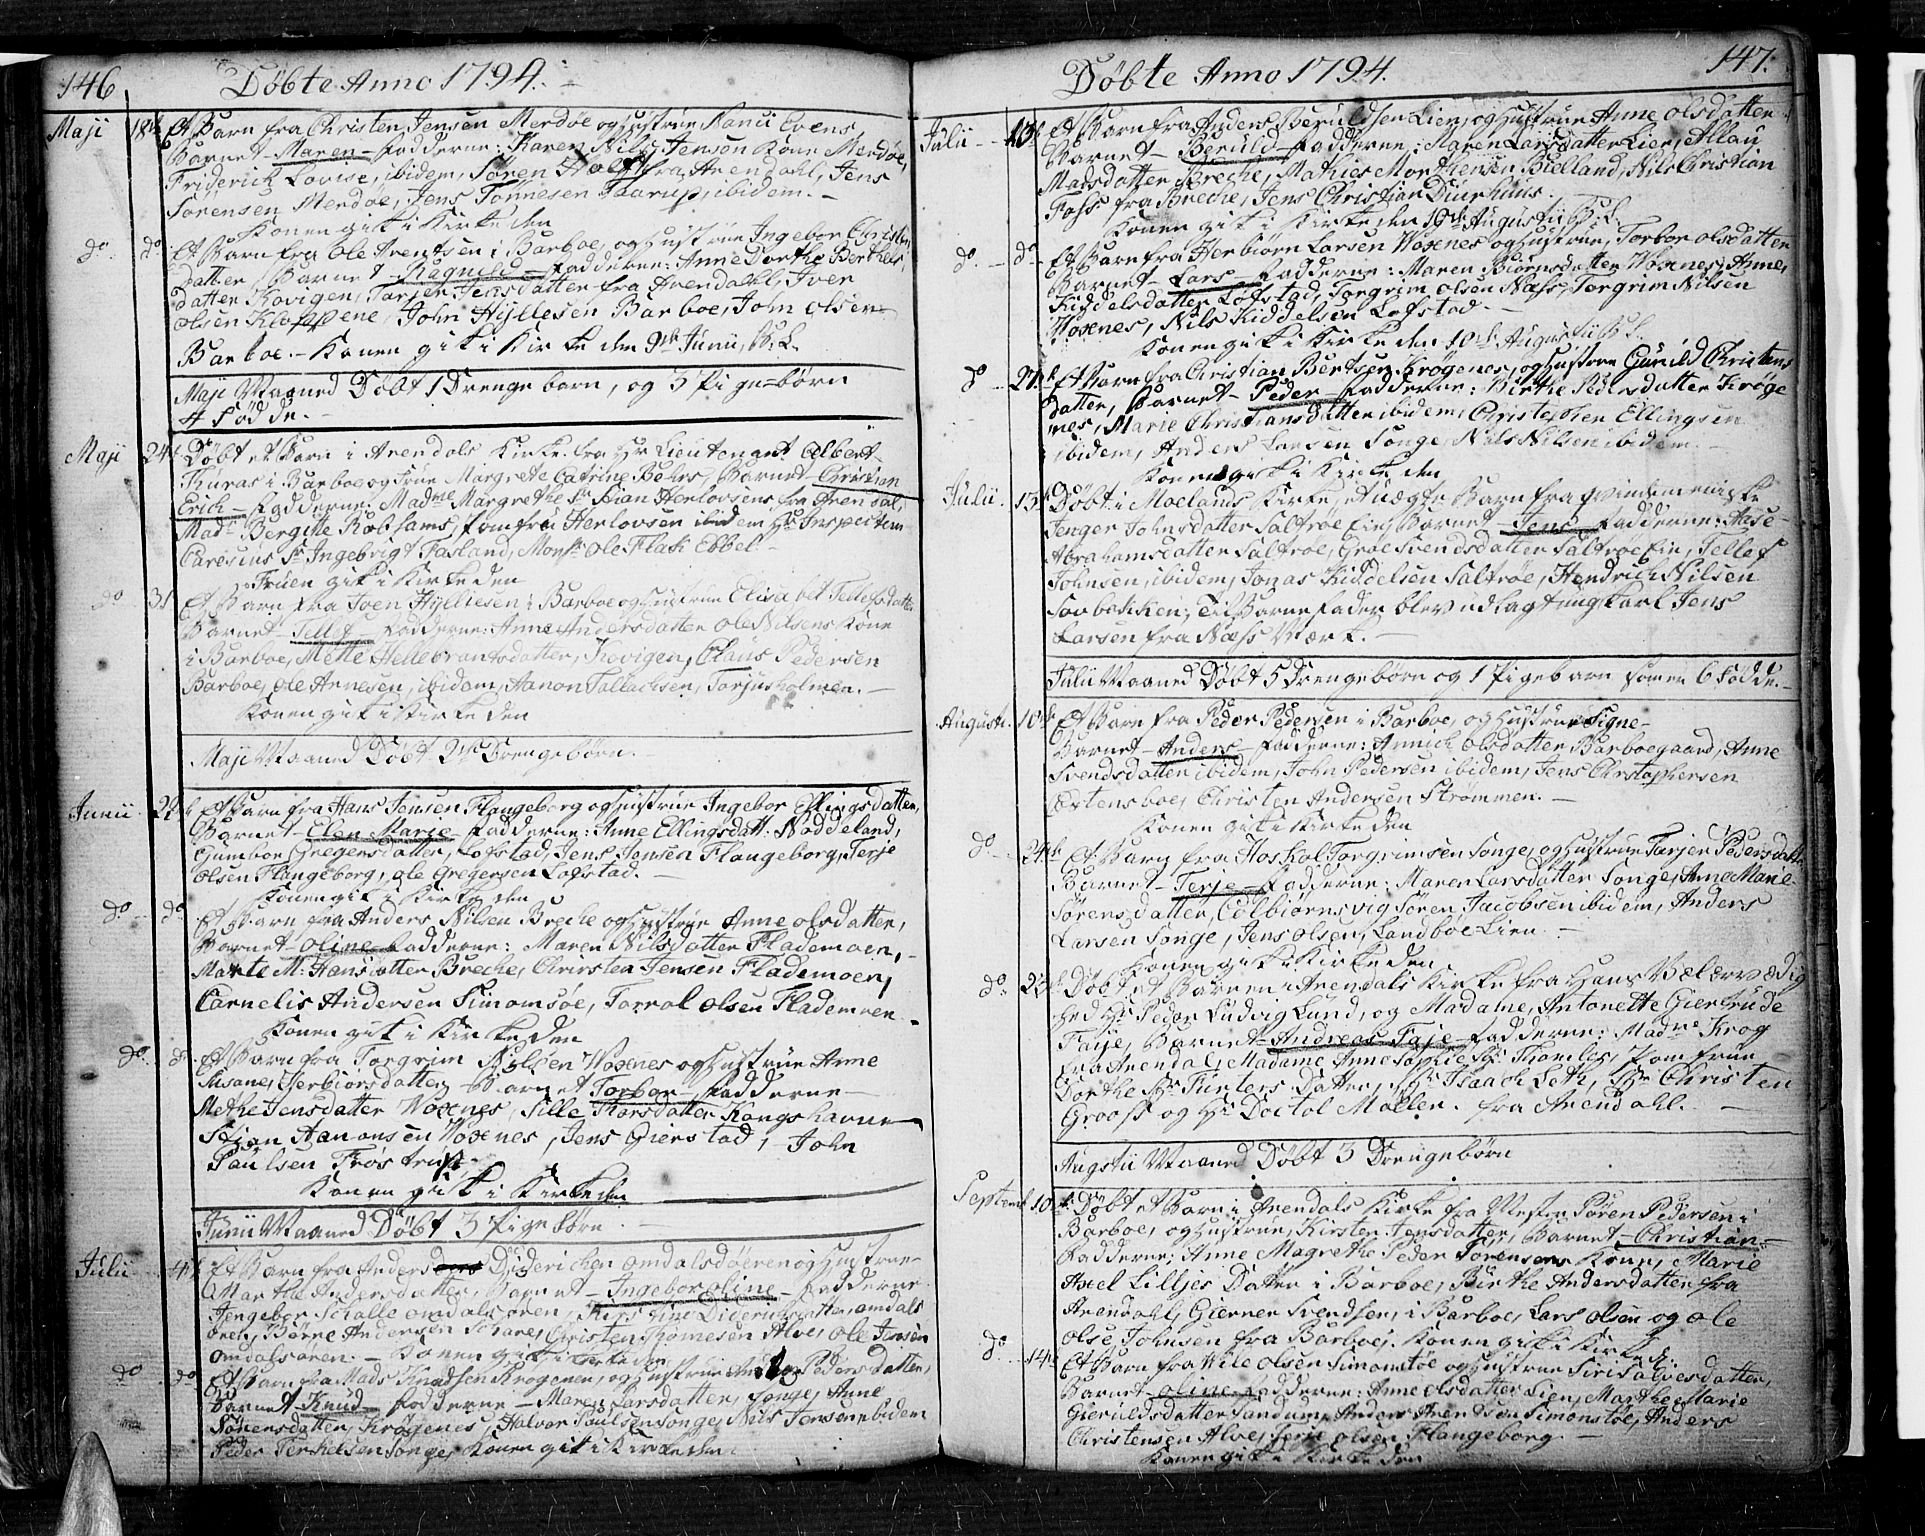 146
Döbte Anno 1794.
Maji 18de Et Barn fra Christen Jensen Merdöe og Hustrue Ranei Evens
Barnet Maren Fadderne: Karen Nils Jensen Kone Merdöe,
Friderich Lovise, ibidem, Sören Holst fra Arendahl, Jens
Sörensen Merdöe, Jens Tönnesen Taarup, ibidem.
Konen gik i Kirke den
do. do. Et Barn fra Ole Arentsen i Barboe, og Hustrue Ingebor Christens
datter, Barnet Ragnild Fadderne: Anne Dorthe Berthels
datter Kovigen, Tarjer Jensdatter fra Arendahl, Iver
Olsen Kloppene, John Hyllesen Barboe, Jom Olsen
Barboe. Konen gik i Kirke den 9de Junii, B. L.
Maji Maaned Döbt 1 Drengebarn, og 3 Pigebörn
4 Födde.
Maji 24de Döbt et Barn i Arendals Kirke fra Hr Lieutenant Albert
Kuras i Barboe og Frue Margrete Catrine Bohrs, Barnet Christian
Erich Fadderne: Madme Margrethe Sr Stian Herlovsens fra Grendal,
Madm Bergitte Robsams, Jomfru Herlovsen ibidem Hr Inspecteur
Caresius Sr Ingebrigt Fasland, Monsr Ole Flak Ebbel.
Fruen gik i Kirke den
do 31 Et Barn fra Joen Hyllesen i Barboe og Hustrue Elisabet Tellefsdatter
Barnet Tellef Fadderne: Anne Andersdatter Ole Nilsens Kone
i Barboe, Mette Hellebrantsdatter, Kovigen, Claus Pedersen
Barboe, Ole Arnesen, ibidem, Aanon Tallachsen, Torjusholmen.
Konen gik i Kirke den
Maji Maaned Döbt 2de Drengebörn.
Junii 22de Et Barn fra Hans Jensen Flangeborg og Hustrue Ingebor Ellingsdatter,
Barnet Elen Marie Fadderne: Anne Ellingsdatt: Naddeland,
Gumbor Gregersdatter, Lofstad, Jens Jensen Flangeborg, Terje
Olsen Flangeborg, Ole Gregersen Lofstad.
Konen gik i Kirke den
do do Et Barn fra Anders Nilsen Breche og Hustrue Anne Olsdatter,
Barnet Oline Fadderne: Maren Nilsdatter Flademoen,
Marte M: Hansdatter Breche, Christen Jensen Flademoen,
Cornelis Andersen Simonsöe, Torral Olsen Flademoen
Konen gik i Kirke den
do. do Et Barn fra Torgrim Nilsen Woxenes og Hustrue Anne
Susane, Herbiorsdatter, Barnet Torbor Fadderne
Methe Jensdatter Woxenes, Sille Thorsdatter Kongshavn
Stian Aanonsen Woxenes, Jens Gierstad, John
Paulsen Tröstrup
Konen gik i Kirke den
Junii Maaned Döbt 3 Pigebörn.
Julii 4de Et Barn fra Anders Diderichsen Omdalsöeren og Hustrue
Marthe Andersdatter, Barnet Ingebor Oline Fadderne
Jengebor Schalle Omdalsören, Kirstine Diderichsdatter Omdals
ören, Börne Andersen Schare, Christen Thomesen Alve, Ole Jensen
Omdalsören. Konen gik i Kirke den
do do Et Barn fra Mads Knudsen Krögenes, og Hustrue Pedersdatter,
Barnet Knud Fadderne Maren Larsdatter, Songe, Anne
Sörensdatter, Krögenes, Halvor Poulsen Songe, Nils Jensen ibidem
Peder Terkelsen Songe, Konen gik i Kirke den
147.
Döbte Anno 1794.
Julii 13de Et Barn fra Anders Beruldsen Lien, og Hustrue Anne Olsdatter
Barnet Beruld Fadderne: Maren Larsdatter Lien, Allau
Madsdatter Breche, Mathies Morthensen Bielland, Nils Christian
Foss fra Breche, Jens Christian Duurhaus.
Konen gik i Kirke den 10de Augustii B. L.
do. do Et Barn fra Herbiörn Larsen Woxenes og Hustrue, Torbor Olsdatter
Barnet Lars Fadderne: Maren Biörnsdatter Woxenes, Anne,
Kiddelsdatter Löfstad, Torgrim Olsen Næss, Torgrim Nilsen
Woxenes, Nils Kiddelsen Lofstad.
Konen gik i Kirke den 10de Augustii B. L.
do 27de Et Barn fra Christian Bentsen Krögenes, og Hustrue Gunild Christens
datter, Barnet Peder Fadderne: Birthe Pedersdatter Kröge
nes, Marie Christiansdatter ibidem, Christopher Ellingsen
ibidem, Anders Larsen Songe, Nils Nilsen ibidem.
Konen gik i Kirke den
Julii. 13de Döbt i Moelands Kirke, et uægte Barn fra Qvindemenniske
Jenger Johnsdatter Saltröe Eie, Barnet Jens Fadderne: Aase
Abrahamsdatter Saltröe, Gröe Svendsdatter Saltröe Eie, Tellef
Johnsen, ibidem, Jonas Kiddelsen Saltröe, Hendrich Nilsen
Sorbakken; Til Barnefader blev udlagt ungkarl Jens
Larsen fra Næss Werk.
Julii Maaned Döbt 5 Drengebörn og 1 Pigebarn som er 6 Födde.
Augusti. 10de Et Barn fra Peder Pedersen i Barboe, og Hustrue Signe
Barnet Anders Fadderne: Annich Olsdatter Barboegaard, Anne
Svendsdatter ibidem, John Pedersen ibidem, Jens Christophersen
Extensboe, Christen Andersen Strömmen.
Konen gik i Kirke den
do. 24de Et Barn fra Hoskol Torgrimsen Songe, og Hustrue Tarjer Pedersdatter
Barnet Terje Fadderne: Maren Larsdatter Songe, Anne Marie
Sörensdatter, Colbiörnsvig, Sören Jacobsen ibidem, Anders
Larsen Songe, Jens Olsen, Landböe Lien.
Konen gik i Kirke den
do. 23de Döbt et Barn i Arendals Kirke fra Hans Velærværdig
hed Hr Peder Ludvig Lund, og Madame, Antonette Giertrude
Faye, Barnet Andreas Faje Fadderne: Madme Krog
fra Arendal, Madame Anne Sophie Sr Thomles, Jomfrue
Dorthe Hr Fürsters Datter, Hr Isaach Leth, Hr Christen
Grooss og Hr Doctol Moller. fra Arendahl.
Augstii Maaned Döbt 3 Drengebörn
Septemb 10de Döbt et Barn i Arendals Kirke fra Mester Sören Pedersen i
Barboe, og Hustrue, Kirsten Jensdatter, Barnet Christian
Fadderne: Anne Magrethe Peder Sörensens Kone, Marie
Axel Lilljes Datter i Barboe, Birthe Andersdatter fra
Arendahl, Gierner Svendsen, i Barboe, Lars Olsen og Ole
Olse, Johnsen fra Barboe. Konen gik i Kirke
do. 14de Et Barn fra Wile Olsen Simonstöe og Hustrue Siri Salvesdatter,
Barnet Oline Fadderne: Anne Olsdatter Lien, Marthe Marie
Gieruldsdatter Sandum, Anders Arentsen Simonstöe, Anders
Christensen Alve, Terje Olsen Flangeborg.
Konen gik i Kirke den